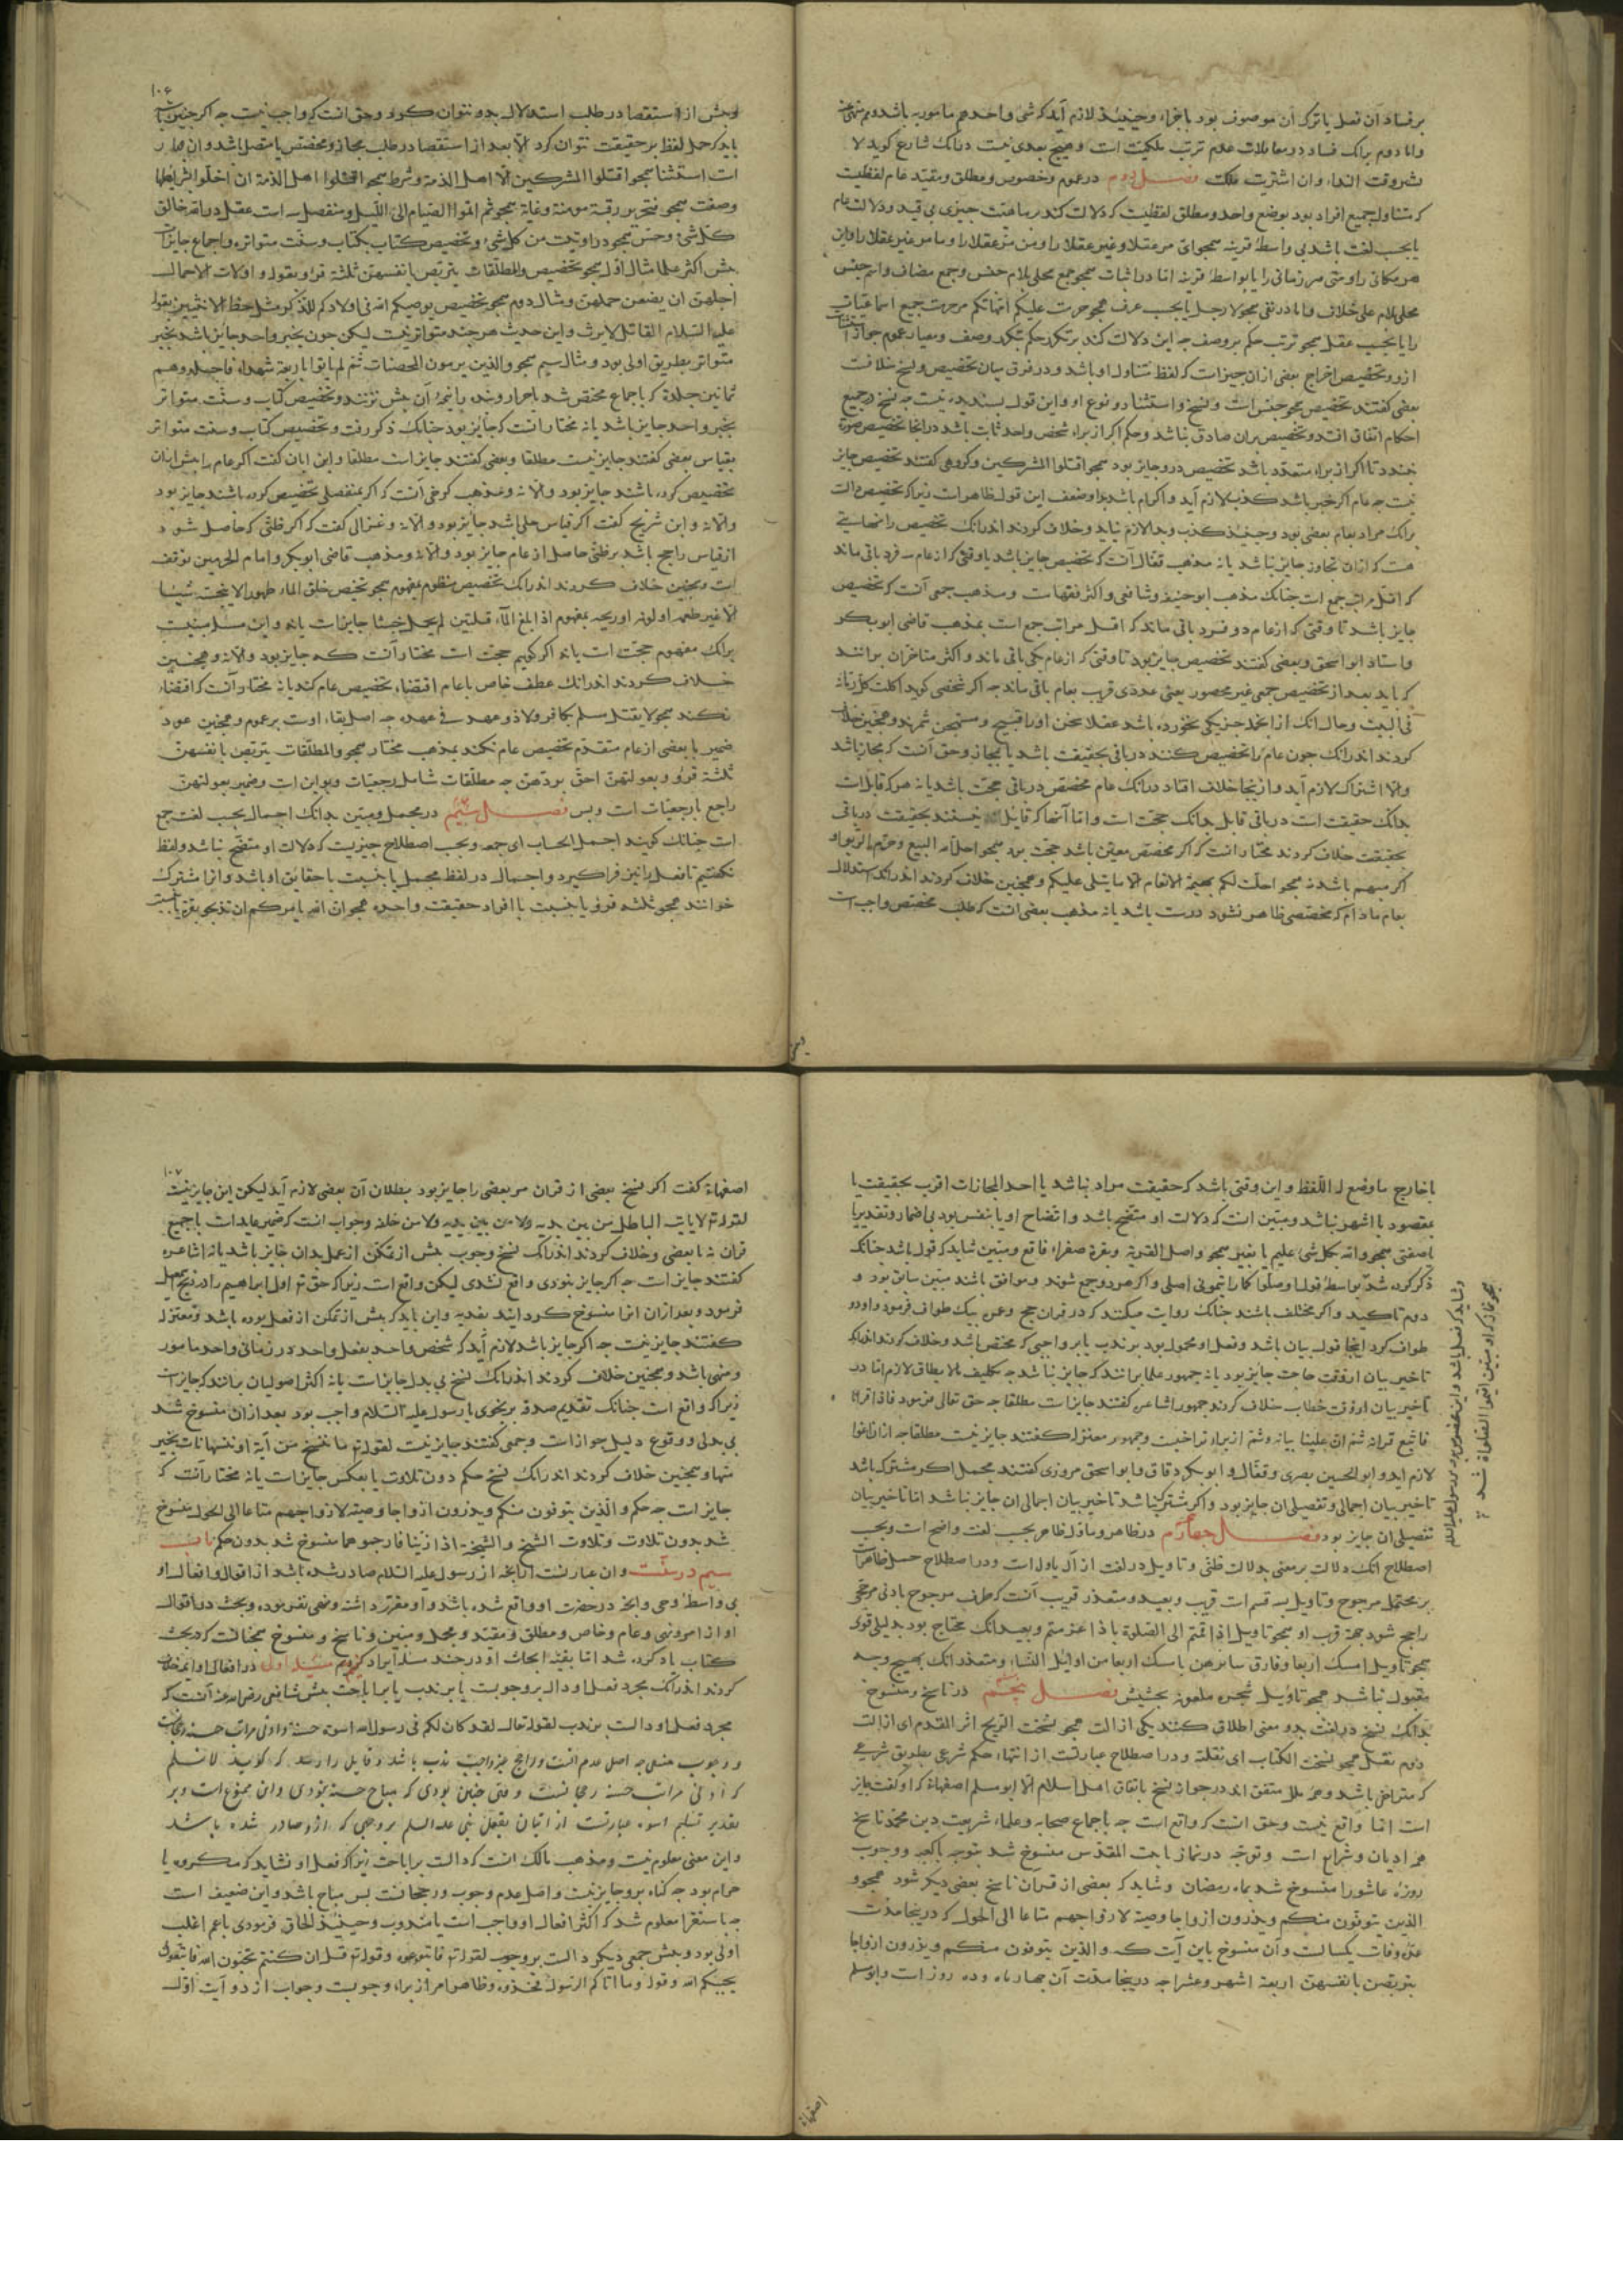 بر فساد آن فعل یا ترک آن موصوف بود باجزاء وحینیذ لازم آید که شی واحد هم مامور به باشد وهم منهی عنه
واما دوم برانک فساد در معاملات عدم ترتب ملکیت است وهیچ بعدی نیست درانک شارع کوید لا
وقت النداء وان اشتریت ملکت فصل دوم در عموم وخصوص ومطلق ومقید عام لفظیست
که متناول جمیع افراد بود بوضع واحد ومطلق لفظیست که دلالت کند بر ماهیت چیزی بی قید ودلالت عام
یا بحسب لغت باشد بی واسطه قرینه همجو ای مر عقلا وغیر عقلا را ومن مر عقلا را وما مر غیر عقلا را واین
هر مکانی را ومتی هر زمانی را یا بواسطه قرینه اما در اثبات همجو جمع محلی بلام جنس وجمع مضاف واسم جنس
محلی بلام علی خلاف واما در نفی همجو لا رجل یا بحسب عرف همجو حرمت علیکم امهاتکم مر حرمت جمیع استمتاعات
را یا بحسب عقل همجو ترتب حکم بر وصف جه این دلالت کند بر تکرر حکم بتکرر وصف ومعیار عموم جواز استثناست
ازو وتخصیص اخراج بعضی از ان چیزاست که لفظ متناول او باشد ودر فرق میان تخصیص ونسخ خلافست
بعضی کفتند تخصیص همجو جنس است ونسخ واستثنا دو نوع او واین قول پسندیده نیست جه نسخ در جمیع
احکام اتفاق افتد وتخصیص بران صادق نباشد وحکم اکر از براء شخص واحد ثابت باشد درانجا تخصیص صورت
نبندد تا اکر از براء متعدد باشد تخصیص درو جایز بود همجو اقتلوا المشرکین وکروهی کفتند تخصیص جایز
نیست جه عام اکر خبر باشد کذب لازم آید واکر امر باشد بدا وضعف این قول ظاهر است زیرا که تخصیص دالست
برانک مراد بعام بعضی بود وحینیذ کذب وبدا لازم نیاید وخلاف کردند اندرانک تخصیص را نهایتی
هست که ازان تجاوز جایز نباشد یا نه مذهب قفال آنست که تخصیص جایز باشد تا وقتی که از عام سه فرد باقی ماند
که اقل مراتب جمع است چنانک مذهب ابو حنیفه وشافعی واکثر فقهاست ومذهب جمعی آنست که تخصیص
جایز باشد تا وقتی که از عام دو فرد باقی ماند که اقل مراتب جمع است بمذهب قاضی ابو بکر
واستاد ابو اسحق وبعضی کفتند تخصیص جایز بود تا وقتی که از عام یکی باقی ماند واکثر متاخران برانند
که باید بعد از تخصیص جمعی غیر محصور یعنی عددی قریب بعام باقی ماند جه اکر شخصی کوید اکلت کل رمانة
فی البیت وحال انک از انجمله جز یکی نخورده باشد عقلا سخن او را قبیح ومستهجن شمرند وهمچنین خلاف
کردند اندرانک چون عام را تخصیص کنند در باقی بحقیقت باشد یا بمجاز وحق آنست که بمجاز باشد
والا اشتراک لازم آید واز ینجا خلاف افتاد درانک عام مخصص در باقی حجت باشد یا نه هر که قابلست
بدانک حقیقت است در باقی قابل بدانک حجت است واما آنها که قایل نیستند بحقیقت در باقی
بحقیقت خلاف کردند مختار انست که اکر مخصص معین باشد حجت بود همجو احل الله البیع وحرم الربوا واکر
اکر مبهم باشد نه همجو احلت لکم بهیمة الانعام الا ما یتلی علیکم وهمچنین خلاف کردند اندرانک استدلال
بعام مادام که مخصصی ظاهر نشود درست باشد یا نه مذهب بعضی انست که طلب مخصص واجب است
۱۰۶
وپیش از استقصا در طلب استدلال بدو نتوان کرد وحق انست که واجب نیست جه اکر چنین باشد
باید که حمل لفظ بر حقیقت نتوان کرد الا بعد از استقصا در طلب مجاز ومخصص یا متصل باشد وان چهار
است استثنا همجو اقتلوا المشرکین الا اهل الذمة وشرط همجو اقتلوا اهل الذمة ان اخلوا بشرایطها
وصفت همجو فتحریر رقبة مومنة وغایة همجو ثم اتموا الصیام الی اللیل ومنفصل سه است عقل در الله خالق
کل شیء وحس همجو در اوتیت من کل شیء وتخصیص کتاب بکتاب وسنت متواتره واجماع جایزست
پیش اکثر علما مثال اول همجو تخصیص والمطلقات یتربصن بانفسهن ثلثة قروء بقوله واولات الاحمال
اجلهن ان یضعن حملهن ومثال دوم همجو تخصیص یوصیکم الله فی اولادکم للذکر مثل حظ الانثیین بقوله
علیه السلام القاتل لا یرث واین حدیث هر چند متواتر نیست لیکن چون بخبر واحد جایز باشد بخبر
متواتر بطریق اولی بود ومثال سیم همجو والذین یرمون المحصنات ثم لم یاتوا باربعة شهداء فاجلدوهم
ثمانین جلدة که باجماع مختص شد باحرار وبنده را نیمه آن بیش نزنند وتخصیص کتاب وسنت متواتر
بخبر واحد جایز باشد یا نه مختار انست که جایز بود چنانک ذکر رفت وتخصیص کتاب وسنت متواتر
بقیاس بعضی کفتند جایز نیست مطلقا وبعضی کفتند جایز است مطلقا وابن ابان کفت اکر عام را پیش ازان
تخصیص کرده باشند جایز بود والا نه ومذهب کرخی آنست که اکر بمنفصلی تخصیص کرده باشند جایز بود
والا نه وابن شریح کفت اکر قیاس جلی باشد جایز بود والا نه وغزالی کفت که اکر ظنی که حاصل شود
از قیاس راجح باشد بر ظنی حاصل از عام جایز بود والا نه ومذهب قاضی ابو بکر وامام الحرمین توقف
است وهمچنین خلاف کردند اندرانک تخصیص منطوق بمفهوم همجو تخصیص خلق الماء طهورا لا ینجسه شیء
الا غیر طعمه او لونه او ریحه بمفهوم اذا بلغ الماء قلتین لم یحمل خبثا جایز است یا نه واین مسله مبنیست
برانک مفهوم حجت است یا نه اکر کوییم حجت است مختار آنست که جایز بود والا نه وهمچنین
خلاف کردند اندرانک عطف خاص با عام اقتضاء تخصیص عام کند یا نه مختار آنست که اقتضاء
نکند همجو لا یقتل مسلم بکافر ولا ذو عهد فی عهده جه اصل بقاء اوست بر عموم وهمچنین عود
ضمیر با بعضی از عام متقدم تخصیص عام نکند بمذهب مختار همجو والمطلقات یتربصن بانفسهن
ثلثة قروء وبعولتهن احق بردهن جه مطلقات شامل رجعیات وبواین است وضمیر بعولتهن
راجع با رجعیات است وبس فصل سیم در مجمل ومبین بدانک اجمال بحسب لغت جمع
است چنانک کویند اجمل الحساب ای جمعه وبحسب اصطلاح چیزیست که دلالت او متضح نباشد ولفظ
نکفتیم تا فعل را نیز فرا کیرد واجمال در لفظ مجمل یا بنسبت با حقایق او باشد وانرا مشترک
خوانند همجو ثلثة قروء یا بنسبت با افراد حقیقت واحده همجو ان الله یامرکم ان تذبحوا بقرة یا بنسبت
با خارج ما وضع له اللفظ واین وقتی باشد که حقیقت مراد نباشد یا احد المجازات اقرب بحقیقت یا
بمقصود یا اشهر نباشد ومبین انست که دلالت او متضح باشد واتضاح او یا بنفس بود بی اضمار وتقدیر یا
صفتی همجو والله بکل شیء علیم یا بغیر همجو واسل القریة وبقرة صفراء فاقع ومبین شاید که قول باشد چنانک
ذکر کرده شد بواسطه قول او صلوا کما رایتمونی اصلی واکر هر دو جمع شوند وموافق باشند مبین سابق بود و
دوم تاکید واکر مختلف باشند چنانک روایت میکنند که در قران حج وعمره بیک طواف فرمود واو دو
طواف کرد اینجا قول بیان باشد وفعل او محمول بود بر ندب یا بر واجبی که مختص باشد وخلاف کردند اندرانک
تاخیر بیان از وقت حاجت جایز بود یا نه جمهور علما برانند که جایز نباشد جه تکلیف ما لا یطاق لازم اما در
تاخیر بیان از وقت خطاب خلاف کردند جمهور اشاعره کفتند جایز است مطلقا جه حق تعالی فرمود فاذا قراناه
فاتبع قرانه ثم ان علینا بیانه وثم از براء تراخیست وجمهور معتزله کفتند جایز نیست مطلقا جه ازان اغوا
لازم اید وابو الحسین بصری وقفال وابو بکر دقاق وابو اسحق مروزی کفتند مجمل اکر مشترک باشد
تاخیر بیان اجمالی وتفصیلی ان جایز بود واکر مشترک نباشد تاخیر بیان اجمالی ان جایز نباشد اما تاخیر بیان
تفصیلی ان جایز بود فصل چهارم در ظاهر وماول ظاهر بحسب لغت واضح است وبحسب
اصطلاح انک دلالت بر معنی بدلالت ظنی وتاویل در لغت از آل یاول است ودر اصطلاح حمل ظاهرست
بر محتمل مرجوح وتاویل سه قسم است قریب وبعید ومتعذر قریب آنست که طرف مرجوح بادنی مرجحی
راجح شود جهة قرب او همجو تاویل اذا قمتم الی الصلوة باذا عزمتم وبعید انک محتاج بود بدلیلی قوی
همجو تاویل امسک اربعا وفارق سایرهن بامسک اربعا من اوایل النساء ومتعذر انک بهیچ وجه
مقبول نباشد همجو تاویل شجره ملعونه فصل پنجم در ناسخ ومنسوخ
بدانک نسخ در لغت بدو معنی اطلاق کنند یکی ازالت همجو نسخت الریح اثر القدم ای ازالت
دوم نقل همجو نسخت الکتاب ای نقلته ودر اصطلاح عبارتست از انتهاء حکم شرعی بطریق شرعی
که متراخی باشد وهمه ملل متفق اند در جواز نسخ باتفاق اهل اسلام الا ابو مسلم اصفهانی که او کفت جایز
است اما واقع نیست وحق انست که واقع است جه باجماع صحابه وعلماء شریعت دین محمد ناسخ
همه ادیان وشرایع است وتوجه در نماز با بیت المقدس منسوخ شد بتوجه با کعبه ووجوب
روزه عاشورا منسوخ شد بماه رمضان وشاید که بعضی از قران ناسخ بعضی دیکر شود همجو و
الذین یتوفون منکم ویذرون ازواجا وصیة لازواجهم متاعا الی الحول که درینجا مدت
عده وفات یکسالست وآن منسوخ باین آیت که والذین یتوفون منکم ویذرون ازواجا
یتربصن بانفسهن اربعة اشهر وعشرا جه درینجا مدت آن چهار ماه وده روز است وابو مسلم
وشاید که فعل باشد واین
همجو نماز کردن او مبین اقیموا الصلوة شد
۱۰۷
اصفهانی کفت اکر نسخ بعضی از قران مر بعضی را جایز بود بطلان آن بعضی لازم آید لیکن این جایز نیست
لقوله تع لا یاتیه الباطل من بین یدیه ولا من خلفه وجواب انست که ضمیر عایدست با جمیع
قران نه با بعضی وخلاف کردند اندرانک نسخ وجوب پیش از تمکن از عمل بدان جایز باشد یا نه اشاعره
کفتند جایز است جه اکر جایز نبودی واقع نشدی لیکن واقع است زیرا که حق تع اول ابراهیم را در ذبح اسمعیل
فرمود وبعد ازان انرا منسوخ کردانید بفدیه واین باید که پیش از تمکن از فعل بوده باشد ومعتزله
کفتند جایز نیست جه اکر جایز باشد لازم آید که شخص واحد بفعل واحد در زمانی واحد مامور
ومنهی باشد وهمچنین خلاف کردند اندرانک نسخ بی بدل جایز است یا نه اکثر اصولیان برانند که جایز است
زیرا که واقع است چنانک تقدیم صدقه بر نجوی با رسول علیه السلام واجب بود بعد ازان منسوخ شد
بی بدلی ووقوع دلیل جواز است وجمعی کفتند جایز نیست لقوله تع ما ننسخ من آیة او ننسها نات بخیر
منها وهمچنین خلاف کردند اندرانک نسخ حکم دون تلاوت یا بعکس جایز است یا نه مختار آنست که
جایز است جه حکم والذین یتوفون منکم ویذرون ازواجا وصیة لازواجهم متاعا الی الحول منسوخ
شد بدون تلاوت وتلاوت الشیخ والشیخة اذا زنیا فارجموهما منسوخ شد بدون حکم باب
سیم در سنت وان عبارتست از انچه از رسول علیه السلام صادر شده باشد از اقوال وافعال او
بی واسطه وحی وانچه در حضرت او واقع شده باشد واو مقرر داشته ونهی نفرموده وبحث در اقوال
او از امر ونهی وعام وخاص ومطلق ومقید ومجمل ومبین وناسخ ومنسوخ همچنانست که در بحث
کتاب یاد کرده شد اما بقیه ابحاث او در چند مسله ایراد کنیم مسله اولی در افعال او ایمه خلاف
کردند اندرانک مجرد فعل او دال بر وجوبست یا بر ندب یا بر اباحت پیش شافعی رضی الله عنه آنست که
مجرد فعل او دالست بر ندب لقوله تعالی لقد کان لکم فی رسول الله اسوة حسنة وادنی مراتب حسنه رجحانست
ووجوب منفی جه اصل عدم انست وراجح غیر واجب ندب باشد وقایل را رسد که کوید لا نسلم
که ادنی مراتب حسنه رجحانست وقتی چنین بودی که مباح حسنه نبودی وان ممنوع است وبر
تقدیر تسلیم اسوه عبارتست از اتیان بفعل نبی علیه السلم بر وجهی که ازو صادر شده باشد
واین معنی معلوم نیست ومذهب مالک انست که دالست بر اباحت زیرا که فعل او نشاید که مکروه یا
حرام بود جه کناه برو جایز نیست واصل عدم وجوب ورجحانست پس مباح باشد واین ضعیف است
جه باستقرا معلوم شد که اکثر افعال او واجب است یا مندوب وحینیذ الحاق فردی باعم اغلب
اولی بود وپیش جمعی دیکر دالست بر وجوب لقوله تع فاتبعوه وقوله تع قل ان کنتم تحبون الله فاتبعونی
یحببکم الله وقوله وما اتاکم الرسول فخذوه وظاهر امر از براء وجوبست وجواب از دو آیت اول
اصفهانی